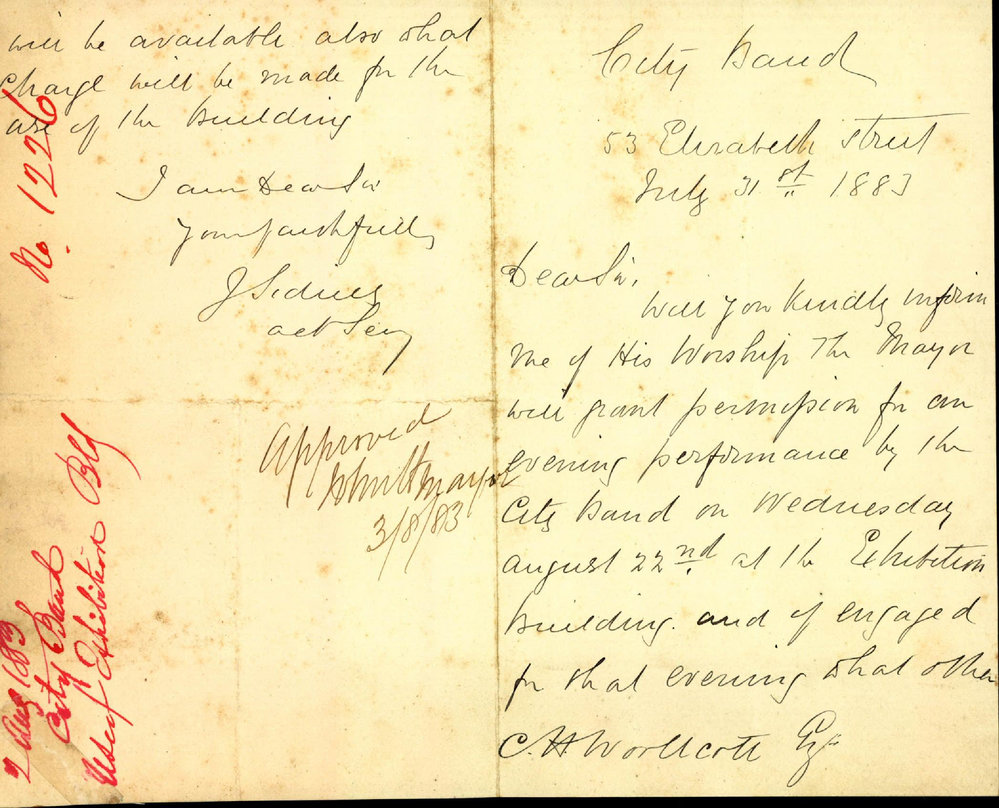 City Band
53 Elizabeth Street
July 31st 1883
Dear Sir,
Will you Kindly inform
me if His Worship The Mayor
will grant permission for an
evening performance by the
City Band on Wednesday
August 22nd at the Exhibition
Building. and if engaged
for that evening what other
C. H. Woollcott Esqr
will be available also what
Charge will be made for the
use of the Building
I am Dear Sir
Yours faithfully
J Sidney
act Secy
Approved
Mayor
3/8/83
No. 1226
2 Aug 1883
City Band
Use of Exhibition Bldg